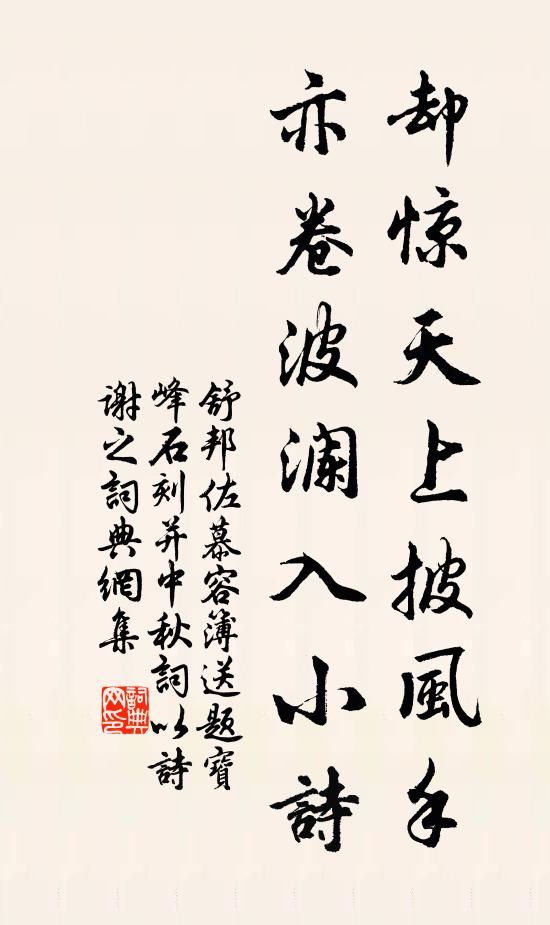 却惊天上披風手
亦卷波澜入小詩
舒邦佐慕容簿送题寶
峰石刻并中秋詞以詩
謝之詞典網集
詞典
网印